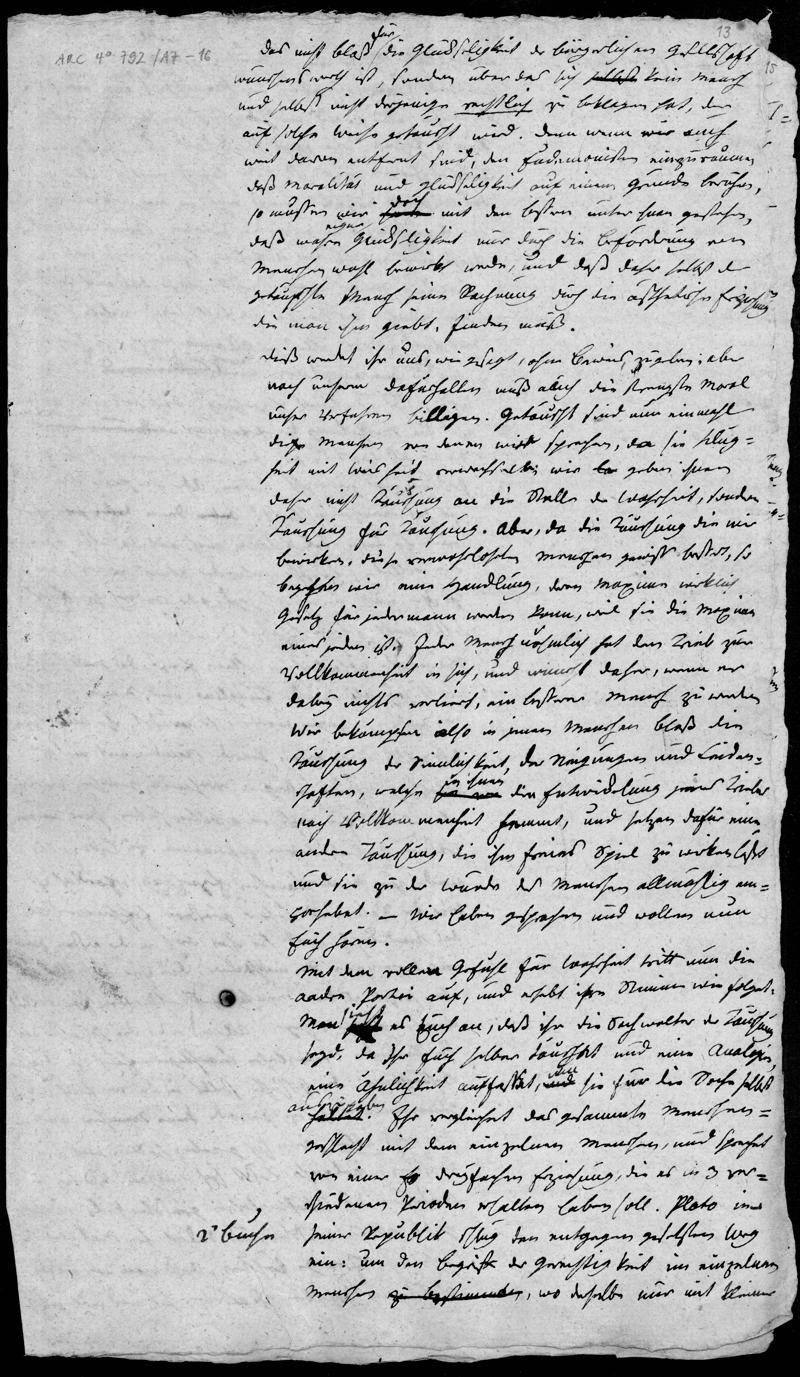 ARC 4° 792/A7-16
13
15
das nicht bloß für die Glückseligkeit der bürgerlichen Gesellschaft
wünschenswerth ist, sondern über das sich selbst kein Mensch
und selbst nicht derjenige rechtlich zu beklagen hat, der
auf solche Weise getäuscht wird. Denn wenn wir auch
weit davon entfernt sind, den Eudemonisten einzuräumen
daß Moralität und Glückseligkeit auf einem Grunde beruhen,
so müssen wir doch mit den besten unter ihnen gestehen,
daß wahre eigne Glückseligkeit nur durch die Beförderung von
Menschenwohl bewirkt werde, und daß daher selbst der
getäuschte Mensch seine Rechnung durch die ästhetische Erziehung
die man ihm giebt, finden muß.
Dieß werdet ihr uns, wie gesagt, ohne Beweis zugeben; aber
nach unserm Dafürhalten muß auch die strengste Moral
unser Verfahren billigen. Getäuscht sind nun einmahl
diese Menschen von denen wir sprechen, da sie Klug=
heit mit Weisheit verwechseln; wir geben ihnen
daher nicht Täuschung an die Stelle der Wahrheit, sondern
Täuschung für Täuschung. Aber, da die Täuschung die wir
bewirken, diese verwahrlosten Menschen gewiß bessert, so
begehen wir eine Handlung, deren Maxime wirklich
Gesetz für jedermann werden kann, weil sie die Maxime
eines jeden ist. Jeder Mensch nähmlich hat den Trieb zur
Vollkommenheit in sich, und wünscht daher, wenn er
dabey nichts verliert, ein besserer Mensch zu werden
Wir bekämpfen also in jenen Menschen bloß die
Täuschung der Sinnlichkeit, der Neigungen und Leiden=
schaften, welche in ihnen die Entwickelung jenes Triebes
nach Vollkommenheit hemmt, und setzen dafür eine
andere Täuschung, die ihm freies Spiel zu wirken läßt
und sie zu der Würde des Menschen allmählig em=
porhebet. — Wir haben gesprochen und wollen nun
Euch hören.
Mit dem vollen Gefühl für Wahrheit tritt nun die
andere Partei auf, und erhebt ihre Stimme wie folget.
Man sieht es Euch an, daß ihr die Sachwalter der Täuschung
seyd, da Ihr Euch selber täuschet und eine Analogie,
eine Ähnlichkeit auffasset, um sie für die Sache selbst
auszugeben. Ihr vergleichet das gesammte Menschen=
geschlecht mit dem einzelnen Menschen, und sprechet
von einer dreyfachen Erziehung, die es in 3 ver=
schiedenen Perioden erhalten haben soll. Plato in
2r Buche
seiner Republik schlug den entgegen gesetzten Weg
ein: um den Begriff der Gerechtigkeit im einzelnen
Menschen zu bestimmen, wo derselbe nur mit kleiner